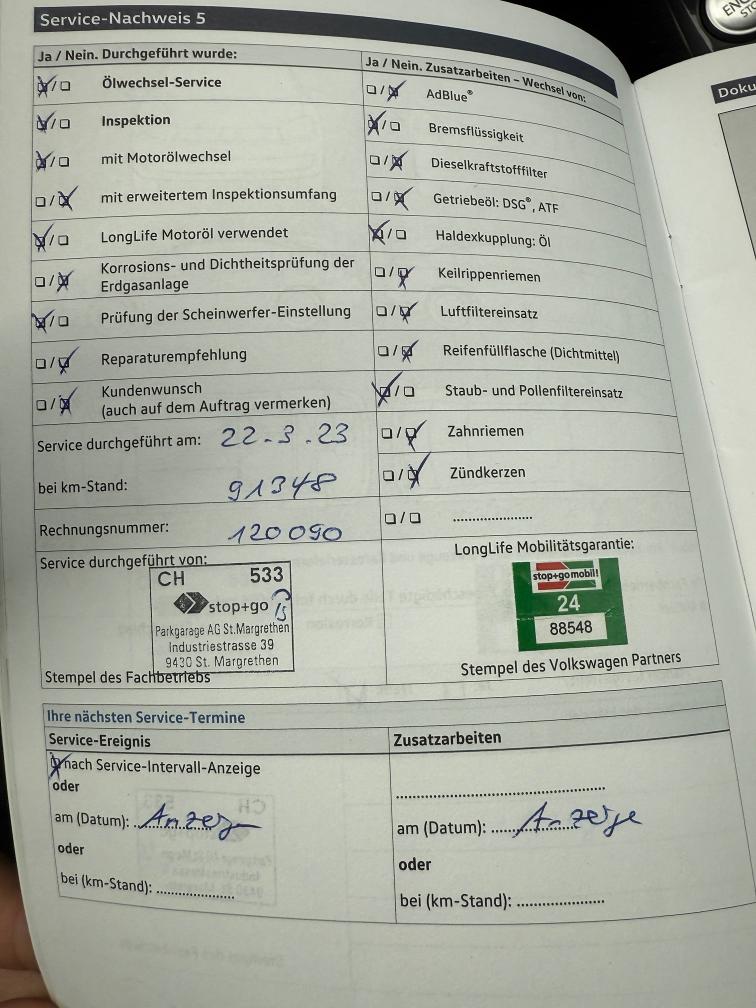 Service-Nachweis 5
Ja / Nein. Durchgeführt wurde:
Ölwechsel-Service
Inspektion
mit Motorölwechsel
mit erweitertem Inspektionsumfang
LongLife Motoröl verwendet
Korrosions- und Dichtheitsprüfung der
Erdgasanlage
Prüfung der Scheinwerfer-Einstellung
Reparaturempfehlung
Kundenwunsch
(auch auf dem Auftrag vermerken)
Service durchgeführt am: 22.3.23
bei km-Stand: 91348
Rechnungsnummer: 120090
Ja / Nein. Zusatzarbeiten – Wechsel von:
AdBlue®
Bremsflüssigkeit
Dieselkraftstofffilter
Getriebeöl: DSG®, ATF
Haldexkupplung: Öl
Keilrippenriemen
Luftfiltereinsatz
Reifenfüllflasche (Dichtmittel)
Staub- und Pollenfiltereinsatz
Zahnriemen
Zündkerzen
....................
Service durchgeführt von:
CH 533
stop+go
Parkgarage AG St.Margrethen
Industriestrasse 39
9430 St. Margrethen
Stempel des Fachbetriebs
LongLife Mobilitätsgarantie:
stop+go mobil!
24
88548
Stempel des Volkswagen Partners
Ihre nächsten Service-Termine
Service-Ereignis
nach Service-Intervall-Anzeige
oder
am (Datum): Anzeige
oder
bei (km-Stand): ....................
Zusatzarbeiten
........................................
am (Datum): Anzeige
oder
bei (km-Stand): ....................
Doku